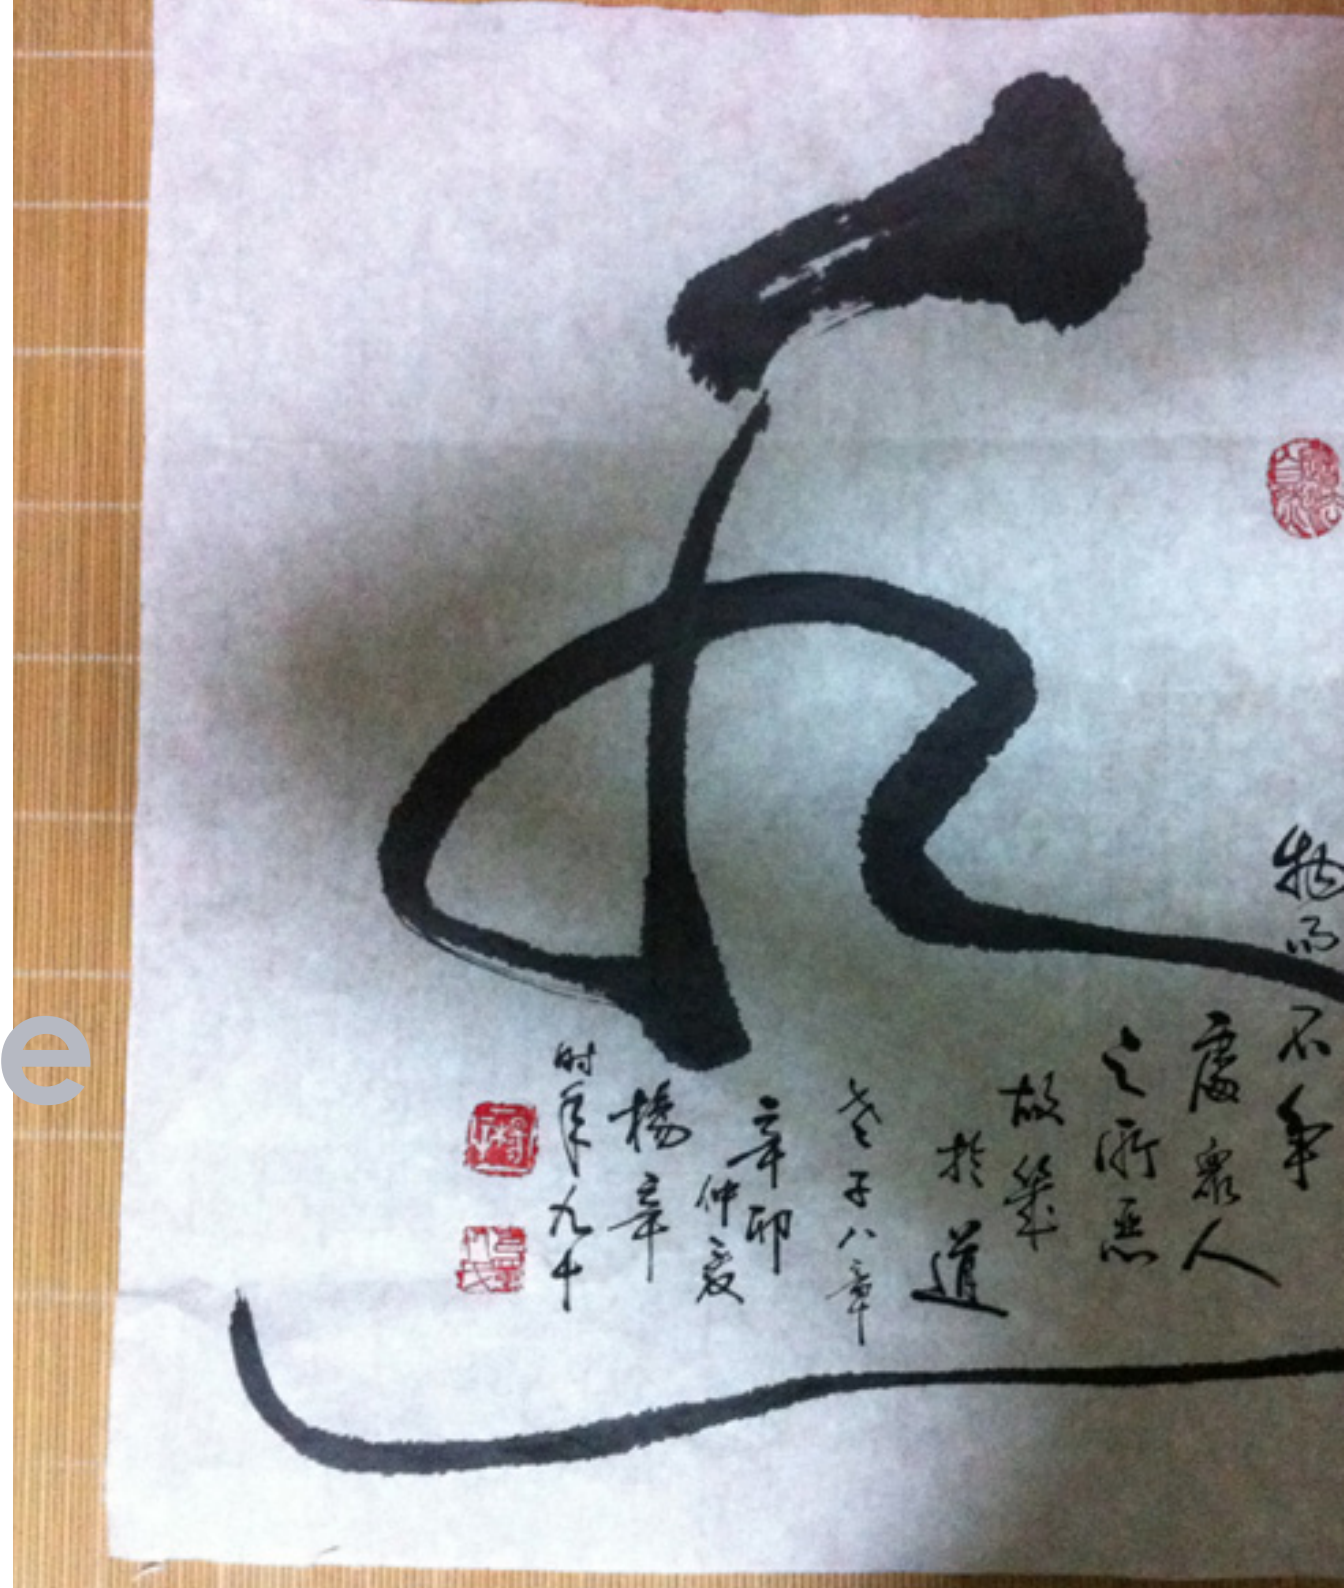 物而不争
處衆人
之所恶
故幾
於道
老子八章
辛卯
仲夏
楊辛
时年九十
e